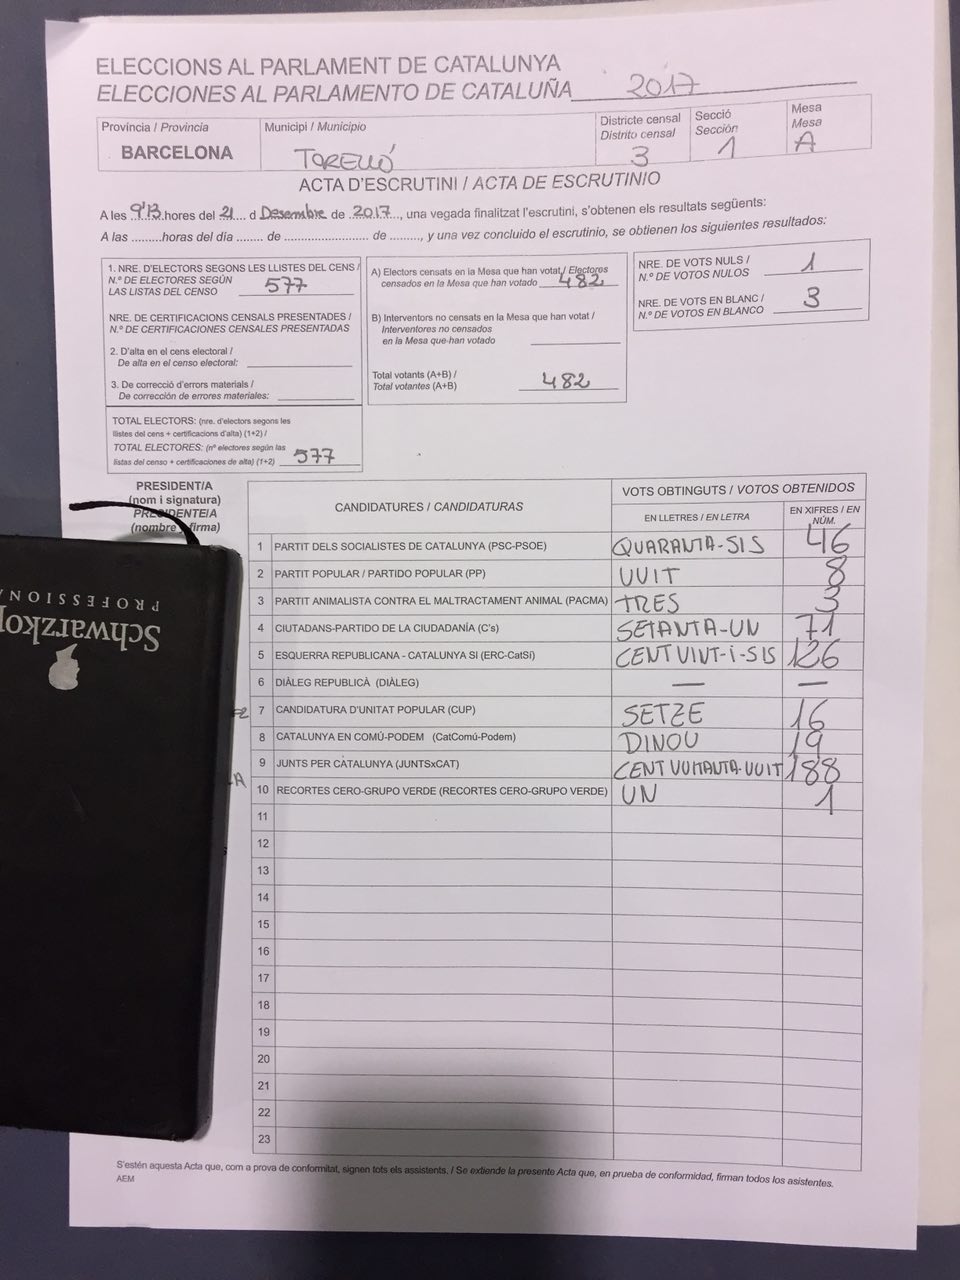 ELECCIONS AL PARLAMENT DE CATALUNYA
ELECCIONES AL PARLAMENTO DE CATALUÑA 2017
Província / Provincia
BARCELONA
Municipi / Municipio
TORELLÓ
Districte censal
Distrito censal
3
Secció
Sección
1
Mesa
Mesa
A
ACTA D'ESCRUTINI / ACTA DE ESCRUTINIO
A les 9'13 hores del 21 d Desembre de 2017, una vegada finalitzat l'escrutini, s'obtenen els resultats següents:
A las ......... horas del día ........ de ........................ de ........, y una vez concluido el escrutinio, se obtienen los siguientes resultados:
1. NRE. D'ELECTORS SEGONS LES LLISTES DEL CENS /
N.º DE ELECTORES SEGÚN
LAS LISTAS DEL CENSO 577
NRE. DE CERTIFICACIONS CENSALS PRESENTADES /
N.º DE CERTIFICACIONES CENSALES PRESENTADAS
2. D'alta en el cens electoral /
De alta en el censo electoral:
3. De correcció d'errors materials /
De corrección de errores materiales:
TOTAL ELECTORS: (nre. d'electors segons les
llistes del cens + certificacions d'alta) (1+2) /
TOTAL ELECTORES: (nº electores según las
listas del censo + certificaciones de alta) (1+2) 577
A) Electors censats en la Mesa que han votat / Electores
censados en la Mesa que han votado 482
B) Interventors no censats en la Mesa que han votat /
Interventores no censados
en la Mesa que han votado
Total votants (A+B) /
Total votantes (A+B) 482
NRE. DE VOTS NULS /
N.º DE VOTOS NULOS 1
NRE. DE VOTS EN BLANC /
N.º DE VOTOS EN BLANCO 3
PRESIDENT/A
(nom i signatura)
PRESIDENTE/A
(nombre y firma)
CANDIDATURES / CANDIDATURAS
VOTS OBTINGUTS / VOTOS OBTENIDOS
EN LLETRES / EN LETRA
EN XIFRES / EN
NÚM.
1 PARTIT DELS SOCIALISTES DE CATALUNYA (PSC-PSOE) QUARANTA-SIS 46
2 PARTIT POPULAR / PARTIDO POPULAR (PP) VUIT 8
3 PARTIT ANIMALISTA CONTRA EL MALTRACTAMENT ANIMAL (PACMA) TRES 3
4 CIUTADANS-PARTIDO DE LA CIUDADANÍA (C's) SETANTA-UN 71
5 ESQUERRA REPUBLICANA - CATALUNYA SI (ERC-CatSí) CENT VINT-I-SIS 126
6 DIÀLEG REPUBLICÀ (DIÀLEG) — —
7 CANDIDATURA D'UNITAT POPULAR (CUP) SETZE 16
8 CATALUNYA EN COMÚ-PODEM (CatComú-Podem) DINOU 19
9 JUNTS PER CATALUNYA (JUNTSxCAT) CENT VUITANTA-VUIT 188
10 RECORTES CERO-GRUPO VERDE (RECORTES CERO-GRUPO VERDE) UN 1
11
12
13
14
15
16
17
18
19
20
21
22
23
S'estén aquesta Acta que, com a prova de conformitat, signen tots els assistents. / Se extiende la presente Acta que, en prueba de conformidad, firman todos los asistentes.
AEM
Schwarzkop
PROFESSIONA